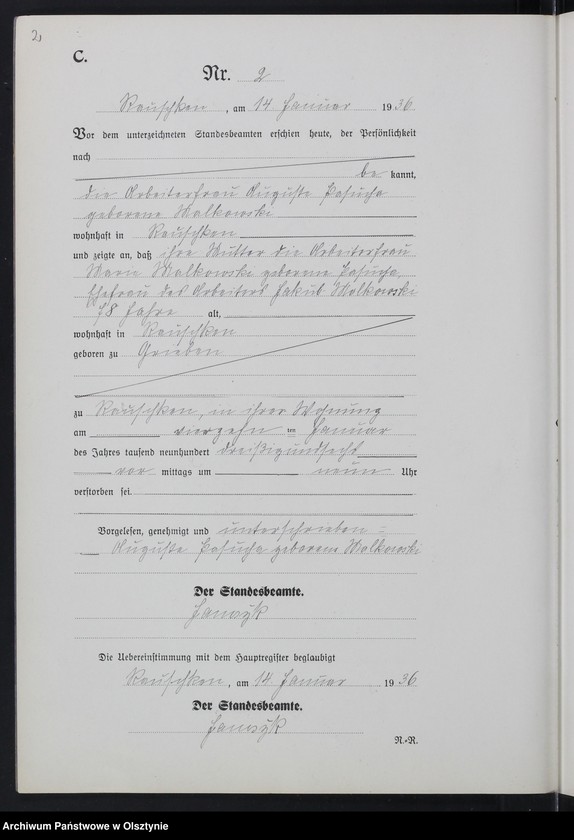 2,
C.
Nr. 2
Rauschken, am 14 Januar 1936
Vor dem unterzeichneten Standesbeamten erschien heute, der Persönlichkeit
nach
be kannt,
die Arbeiterfrau Auguste
geborene Malkowski
wohnhaft in Rauschken
und zeigte an, daß ihre Mutter die Arbeiterfrau
Marie Malkowski geborene
Ehefrau des Arbeiters Jakub Malkowski
78 Jahre alt,
wohnhaft in Rauschken
geboren zu Grieben
zu Rauschken, in ihrer Wohnung
am vierzehn ten Januar
des Jahres tausend neunhundert dreißigundsechs
vor mittags um neun Uhr
verstorben sei.
Vorgelesen, genehmigt und unterschrieben =
Auguste geborene Malkowski
Der Standesbeamte.
Die Uebereinstimmung mit dem Hauptregister beglaubigt
Rauschken, am 14. Januar 1936
Der Standesbeamte.
N.-R.
Archiwum Państwowe w Olsztynie